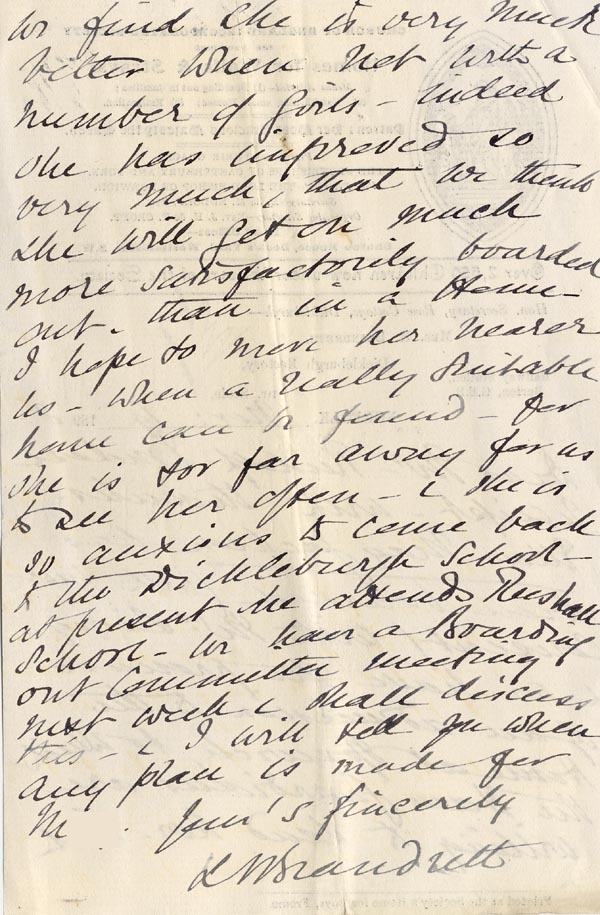 we find she is very much
better when not with a
number of girls - indeed
she has improved so
very much, that we think
she will get on much
more satisfactorily boarded
out - than in a Home -
I hope to move her nearer
us - when a really suitable
home can be found - for
she is too far away for us
to see her often - & she is
so anxious to come back
to the Dickleburgh School -
at present she attends Rushall
School - we have a Boarding
out Committee meeting
next week & shall discuss
this - & I will tell you when
any plan is made for
M . Your's sincerely
L W Brandreth